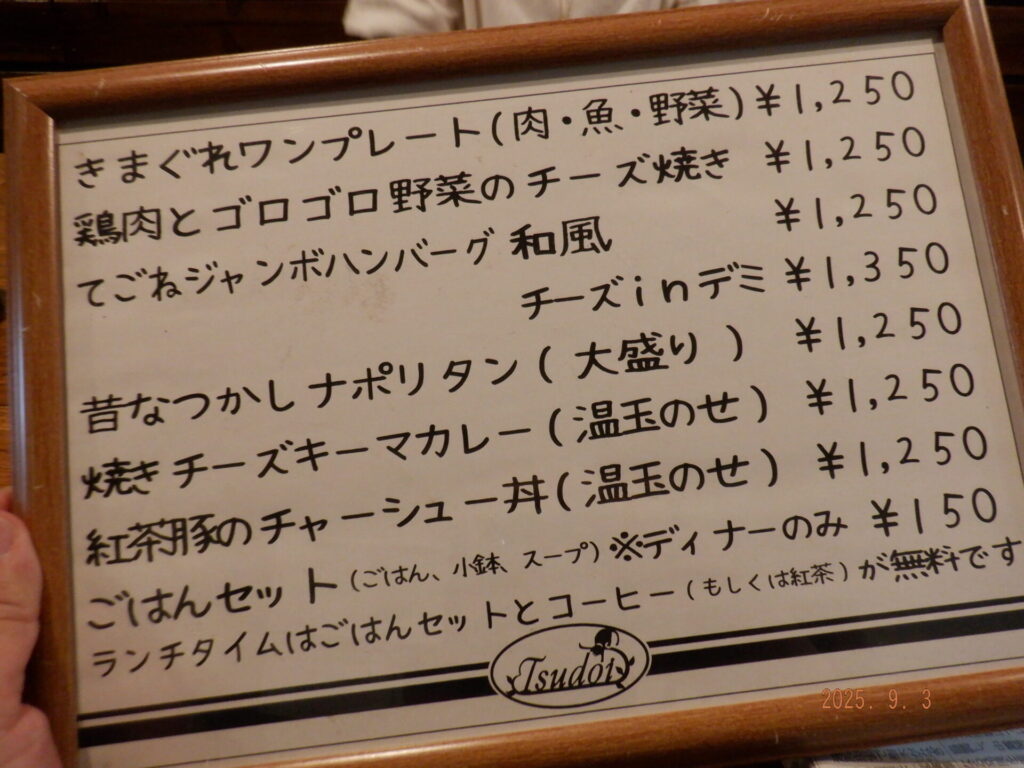 きまぐれワンプレート(肉・魚・野菜) ¥1,250
鶏肉とゴロゴロ野菜のチーズ焼き ¥1,250
てごねジャンボハンバーグ 和風 ¥1,250
チーズinデミ ¥1,350
昔なつかしナポリタン(大盛り) ¥1,250
焼きチーズキーマカレー(温玉のせ) ¥1,250
紅茶豚のチャーシュー丼(温玉のせ) ¥1,250
ごはんセット(ごはん、小鉢、スープ)※ディナーのみ ¥150
ランチタイムはごはんセットとコーヒー(もしくは紅茶)が無料です
Tsudoi
2025. 9. 3